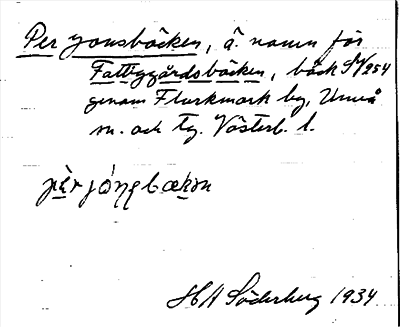 Per jonsbäcken, ä. namn för
Fattiggårdsbäcken, bäck SV/254
genom Flurkmark by, Umeå
sn. och tg. Västerb. l.
H A Söderberg 1934